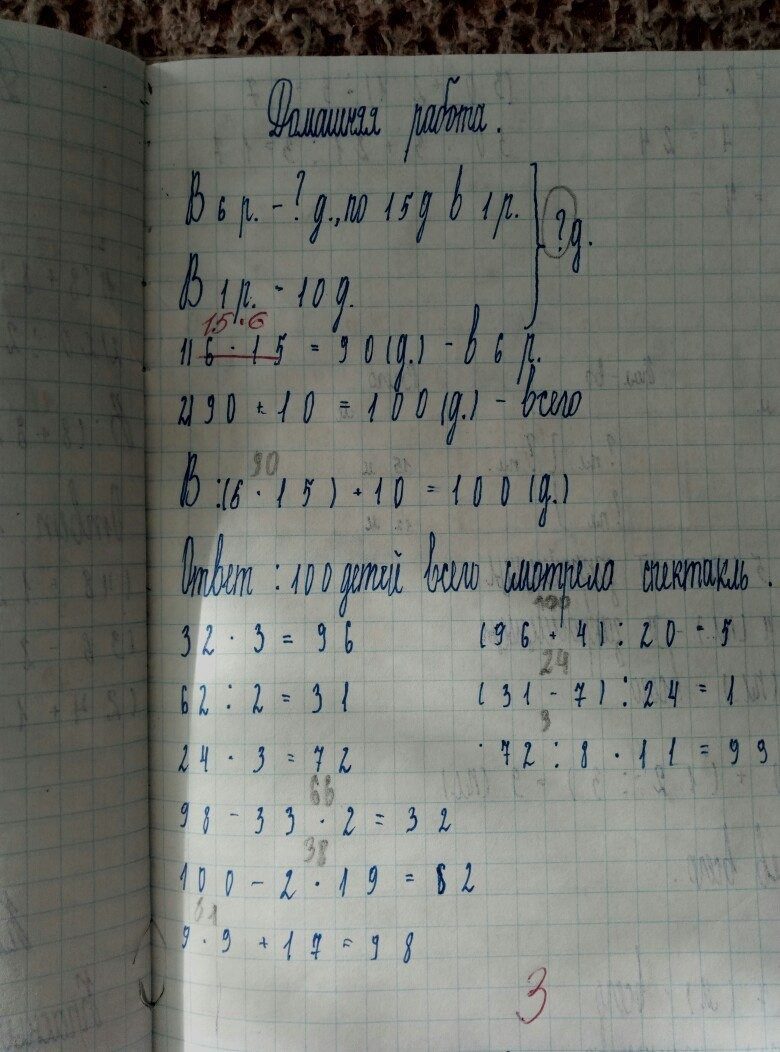 Домашняя работа.
В 6 р. - ? д., по 15 д в 1 р.
? д.
В 1 р. - 10 д.
15 · 6
1) 6 · 15 = 90 (д.) - в 6 р.
2) 90 + 10 = 100 (д.) - всего
90
В : (6 · 15) + 10 = 100 (д.)
Ответ : 100 детей всего смотрело спектакль .
100
32 · 3 = 96 (96 + 4) : 20 = 5
24
62 : 2 = 31 (31 - 7) : 24 = 1
9
24 · 3 = 72 72 : 8 · 11 = 99
66
98 - 33 · 2 = 32
38
100 - 2 · 19 = 62
81
9 · 9 + 17 = 98
3